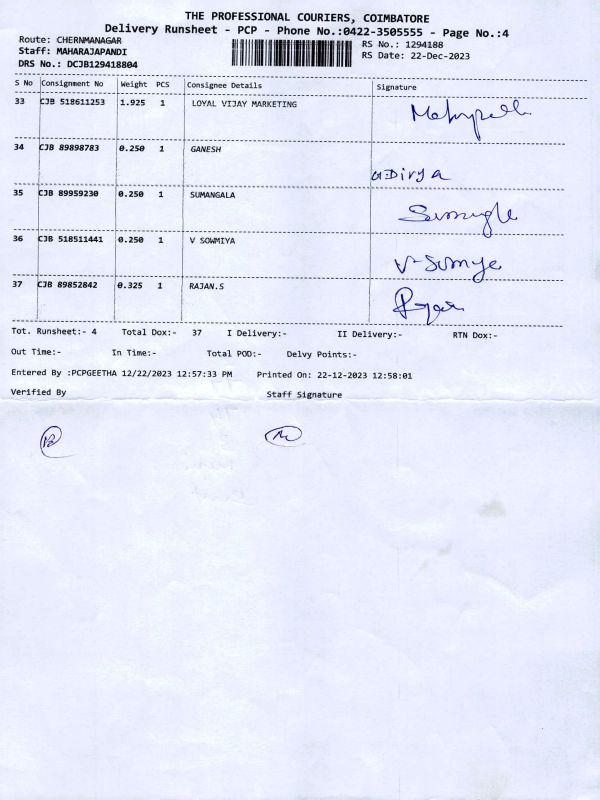 THE PROFESSIONAL COURIERS, COIMBATORE
Delivery Runsheet - PCP - Phone No.:0422-3505555 - Page No.:4
Route: CHERNMANAGAR
RS No.: 1294188
Staff: MAHARAJAPANDI
RS Date: 22-Dec-2023
DRS No.: DCJB129418804
S No Consignment No Weight PCS Consignee Details Signature
33 CJB 518611253 1.925 1 LOYAL VIJAY MARKETING
34 CJB 89898783 0.250 1 GANESH
35 CJB 89959230 0.250 1 SUMANGALA
36 CJB 518511441 0.250 1 V SOWMIYA
37 CJB 89852842 0.325 1 RAJAN.S
Tot. Runsheet:- 4 Total Dox:- 37 I Delivery:- II Delivery:- RTN Dox:-
Out Time:- In Time:- Total POD:- Delvy Points:-
Entered By :PCPGEETHA 12/22/2023 12:57:33 PM Printed On: 22-12-2023 12:58:01
Verified By Staff Signature